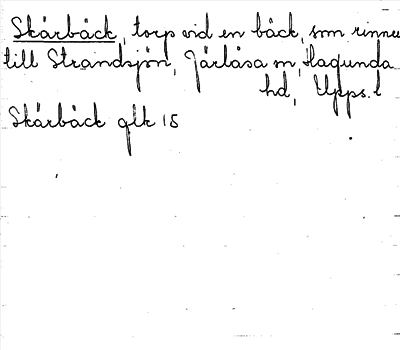 Skårbäck, torp vid en bäck, som rinner
till Strandsjön, Järlåsa sn, Hagunda
hd, Upps. l
Skårbäck glk 15